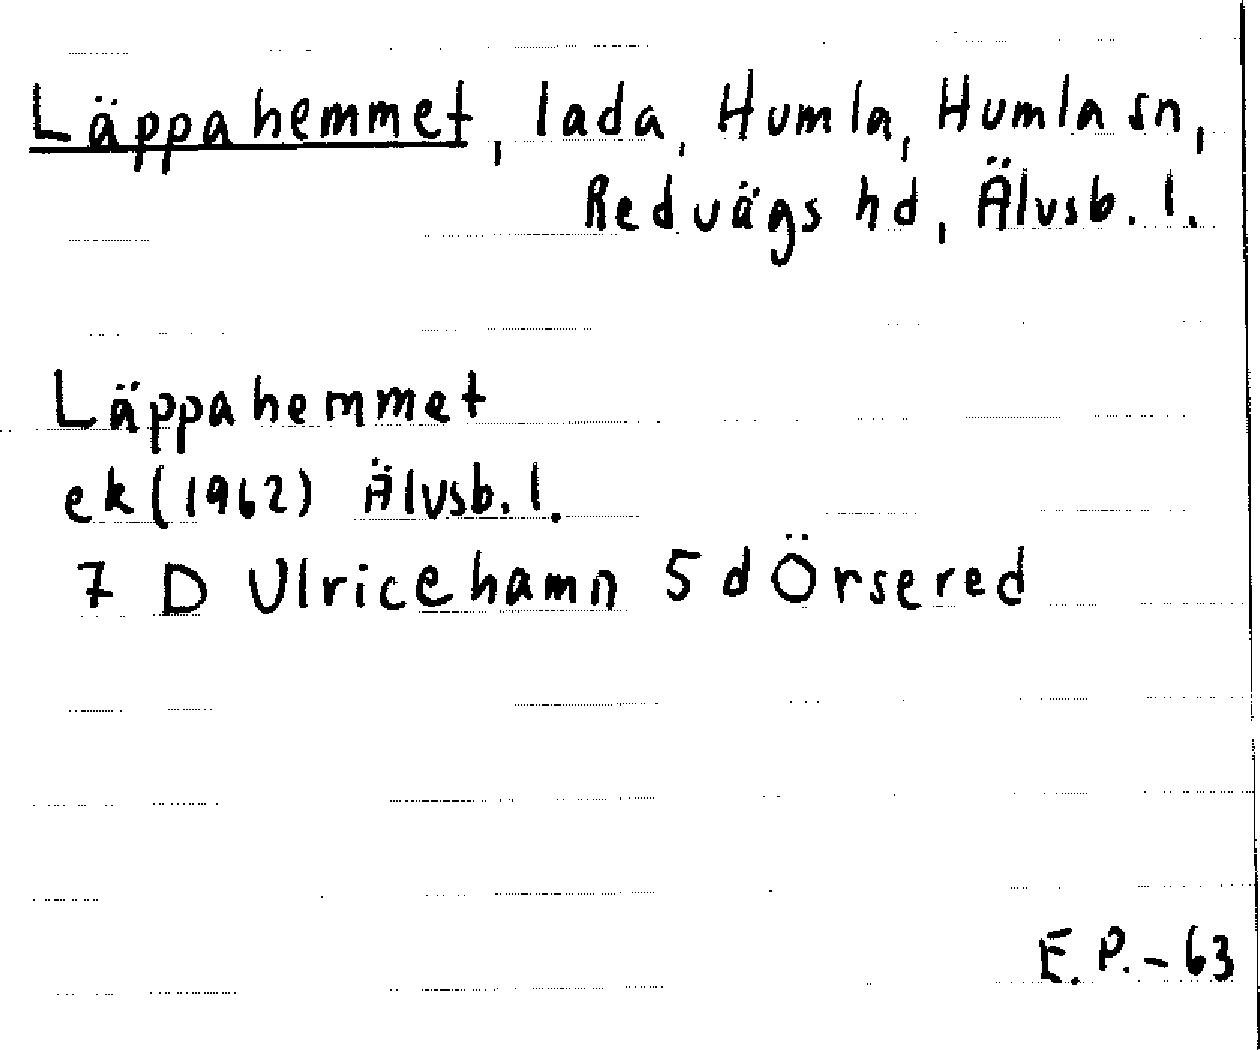 Läppahemmet, lada, Humla, Humla sn,
Redvägs hd, Älvsb. l.
Läppahemmet
ek (1962) Älvsb. l.
7 D Ulricehamn 5 d Örsered
E. P. - 63